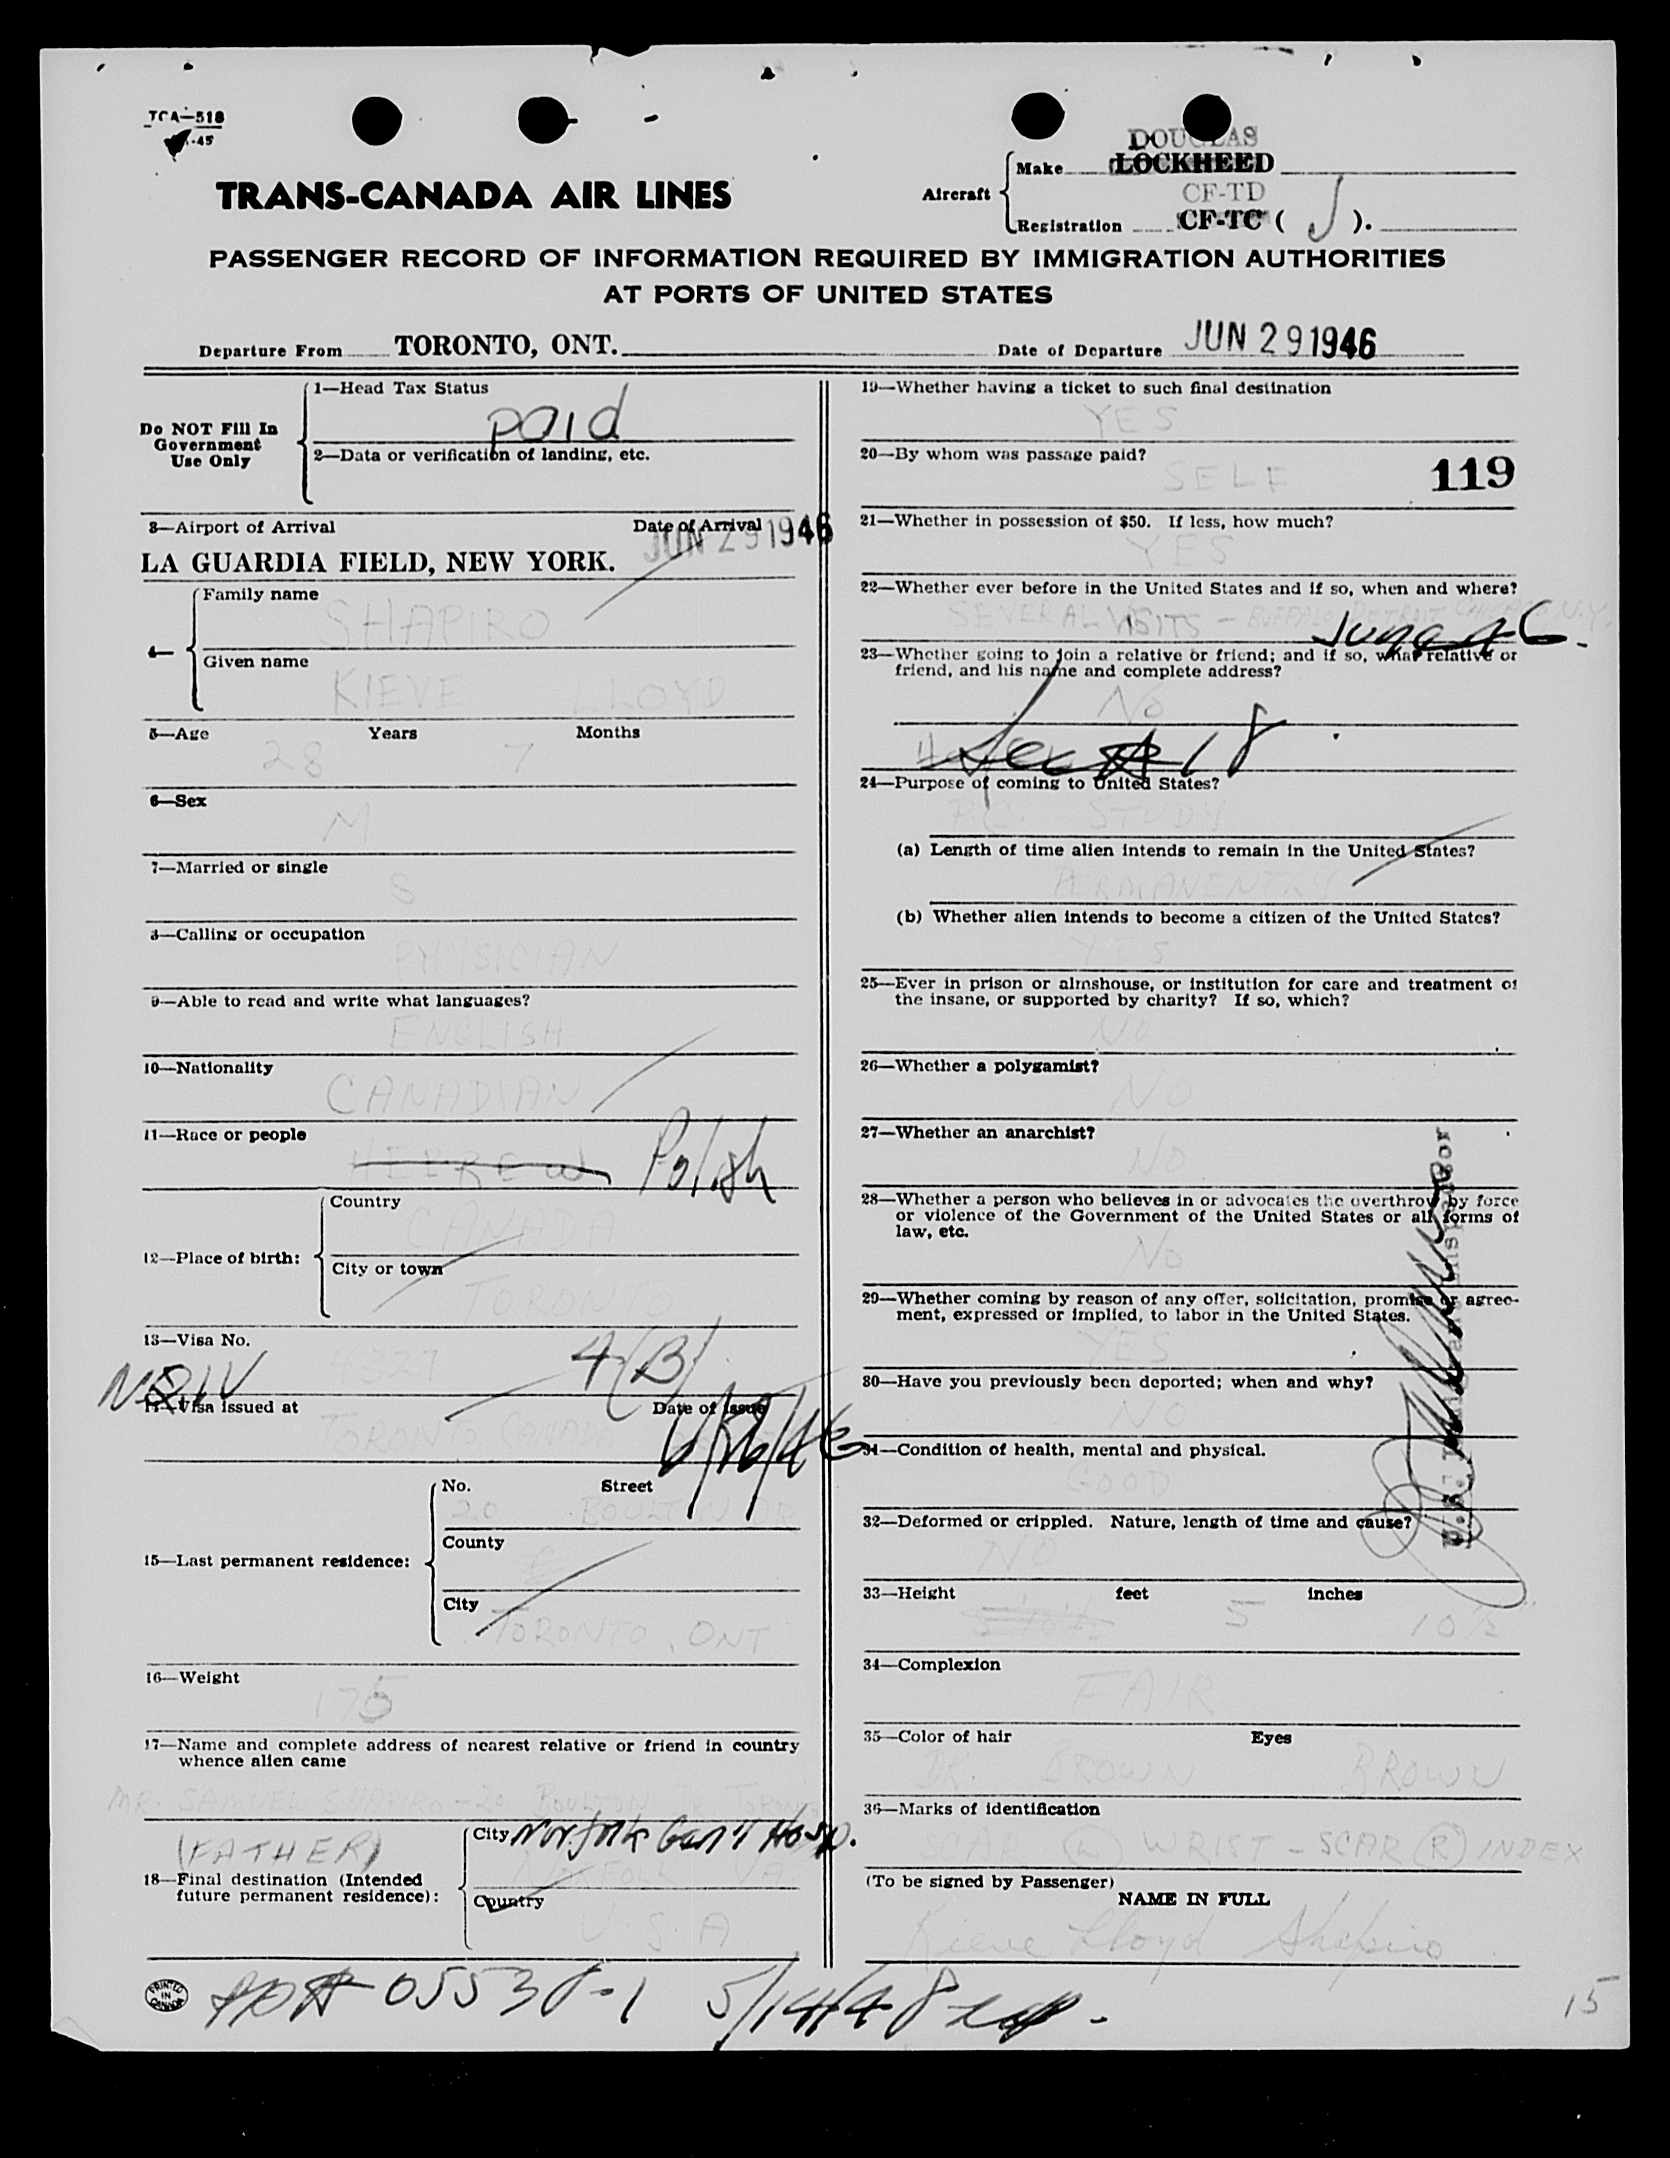 TCA—518
-45
TRANS-CANADA AIR LINES
Aircraft
Make DOUGLAS
LOCKHEED
CF-TD
Registration CF-TC ( J ).
PASSENGER RECORD OF INFORMATION REQUIRED BY IMMIGRATION AUTHORITIES
AT PORTS OF UNITED STATES
Departure From TORONTO, ONT.
Date of Departure JUN 29 1946
Do NOT Fill In
Government
Use Only
1—Head Tax Status
paid
2—Data or verification of landing, etc.
3—Airport of Arrival
Date of Arrival
JUN 29 1946
LA GUARDIA FIELD, NEW YORK.
4—
Family name
SHAPIRO
Given name
KIEVE LLOYD
5—Age Years Months
28 7
6—Sex
M
7—Married or single
S
8—Calling or occupation
PHYSICIAN
9—Able to read and write what languages?
ENGLISH
10—Nationality
CANADIAN
11—Race or people
HEBREW Polish
12—Place of birth:
Country
CANADA
City or town
TORONTO
13—Visa No.
4327 4(B)
NQIV
14—Visa issued at Date of issue
TORONTO CANADA 6/26/46
15—Last permanent residence:
No. Street
20 BOULTON DR
County
City
TORONTO, ONT
16—Weight
175
17—Name and complete address of nearest relative or friend in country
whence alien came
MR. SAMUEL SHAPIRO - 20 BOULTON DR. TORONTO
(FATHER)
18—Final destination (Intended
future permanent residence):
City Norfolk Gen'l Hosp.
NORFOLK VA
Country
U.S.A
PRINTED
IN
CANADA
19—Whether having a ticket to such final destination
YES
20—By whom was passage paid?
SELF
119
21—Whether in possession of $50. If less, how much?
YES
22—Whether ever before in the United States and if so, when and where?
SEVERAL VISITS - BUFFALO DETROIT CHICAGO N.Y.
June 46.
23—Whether going to join a relative or friend; and if so, what relative or
friend, and his name and complete address?
No
Sec # 18
24—Purpose of coming to United States?
STUDY
(a) Length of time alien intends to remain in the United States?
PERMANENTLY
(b) Whether alien intends to become a citizen of the United States?
YES
25—Ever in prison or almshouse, or institution for care and treatment of
the insane, or supported by charity? If so, which?
NO
26—Whether a polygamist?
NO
27—Whether an anarchist?
NO
28—Whether a person who believes in or advocates the overthrow by force
or violence of the Government of the United States or all forms of
law, etc.
No
29—Whether coming by reason of any offer, solicitation, promise or agree-
ment, expressed or implied, to labor in the United States.
YES
30—Have you previously been deported; when and why?
NO
31—Condition of health, mental and physical.
GOOD
32—Deformed or crippled. Nature, length of time and cause?
NO
33—Height feet inches
5 10½
34—Complexion
FAIR
35—Color of hair Eyes
BR. BROWN BROWN
36—Marks of identification
SCAR (L) WRIST - SCAR (R) INDEX
(To be signed by Passenger)
NAME IN FULL
Kieve Lloyd Shapiro
05538-1 5/14/48
15